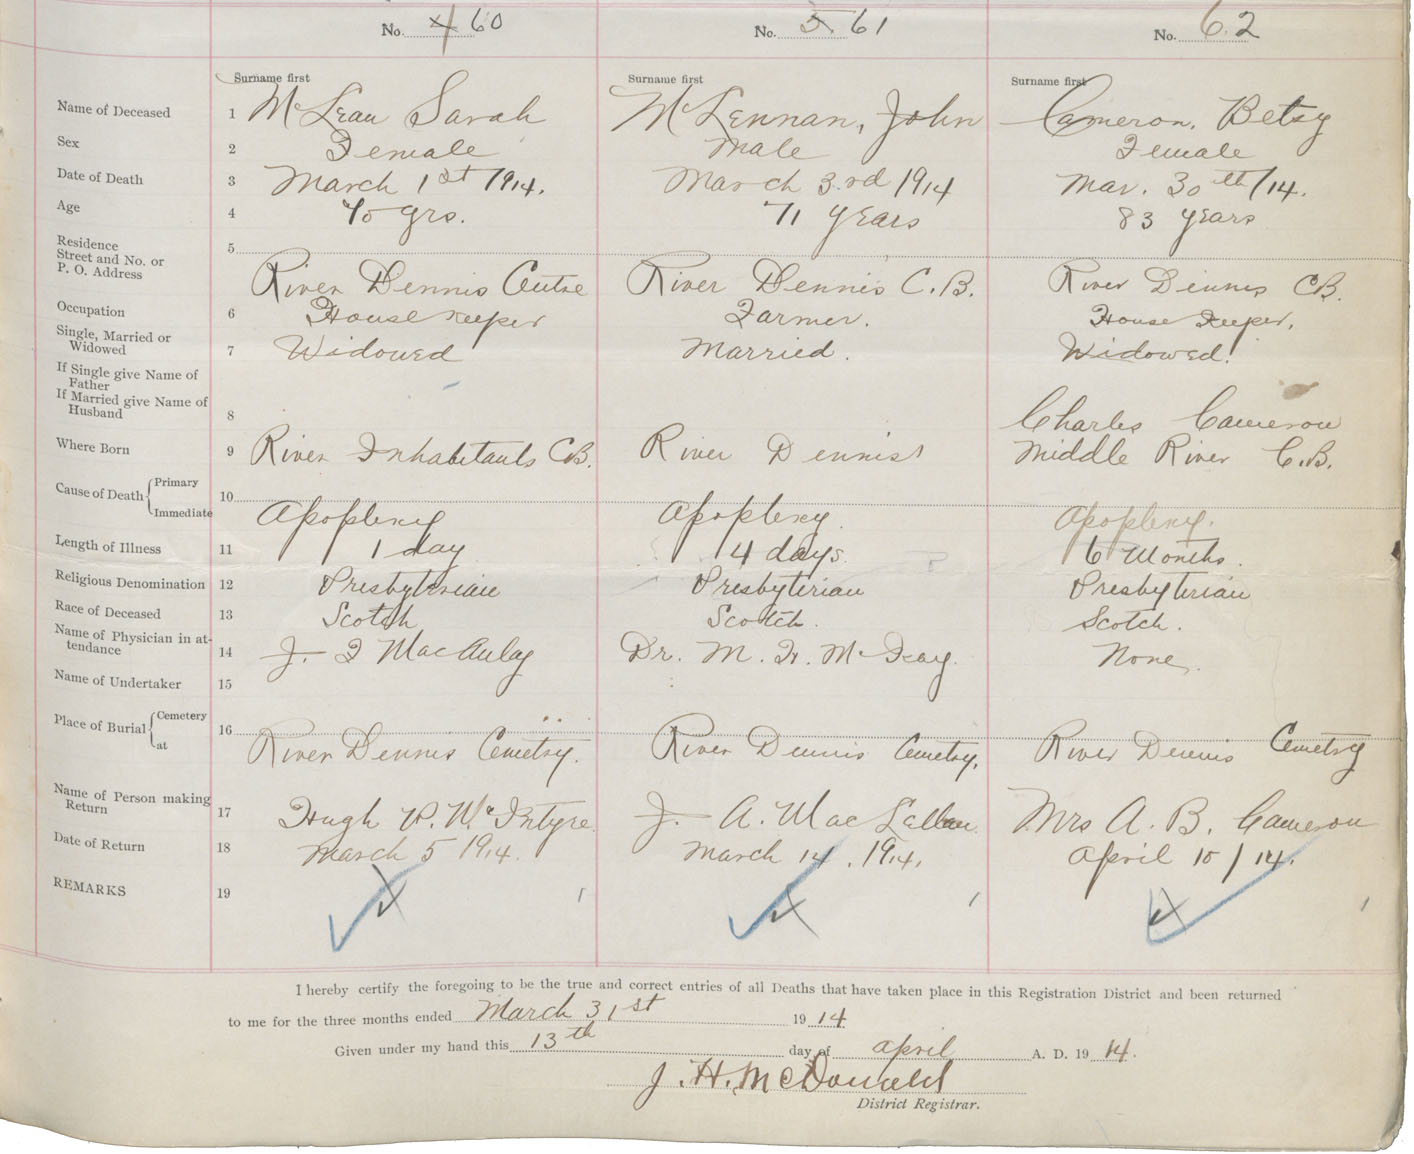 No. 4 60 No. 5 61 No. 62
Surname first Surname first Surname first
Name of Deceased 1 McLean Sarah McLennan, John Cameron, Betsy
Sex 2 Female Male Female
Date of Death 3 March 1st 1914. March 3rd 1914 Mar. 30th/14.
Age 4 70 yrs. 71 years 83 years
Residence
Street and No. or 5
P. O. Address River Dennis Centre River Dennis C.B. River Dennis CB.
Occupation 6 House Keeper Farmer. House Keeper.
Single, Married or
Widowed 7 Widowed Married. Widowed.
If Single give Name of
Father
If Married give Name of
Husband 8 Charles Cameron
Where Born 9 River Inhabitants CB. River Dennis Middle River C.B.
Cause of Death Primary 10
Immediate Apoplexy Apoplexy. Apoplexy.
Length of Illness 11 1 day 4 days 6 Months.
Religious Denomination 12 Presbyterian Presbyterian Presbyterian
Race of Deceased 13 Scotch Scotch. Scotch.
Name of Physician in at-
tendance 14 J. F MacAulay Dr. M. None.
Name of Undertaker 15
Place of Burial Cemetery 16
at River Dennis Cemetry. River Dennis Cemetry. River Dennis Cemetry
Name of Person making
Return 17 Hugh McIntyre J. A. Mac Mrs A. B. Cameron
Date of Return 18 March 5 1914. March 14, 1914. April 10/14.
REMARKS 19
I hereby certify the foregoing to be the true and correct entries of all Deaths that have taken place in this Registration District and been returned
to me for the three months ended March 31st 1914
Given under my hand this 13th day of April A. D. 1914.
J. H. McDonald
District Registrar.